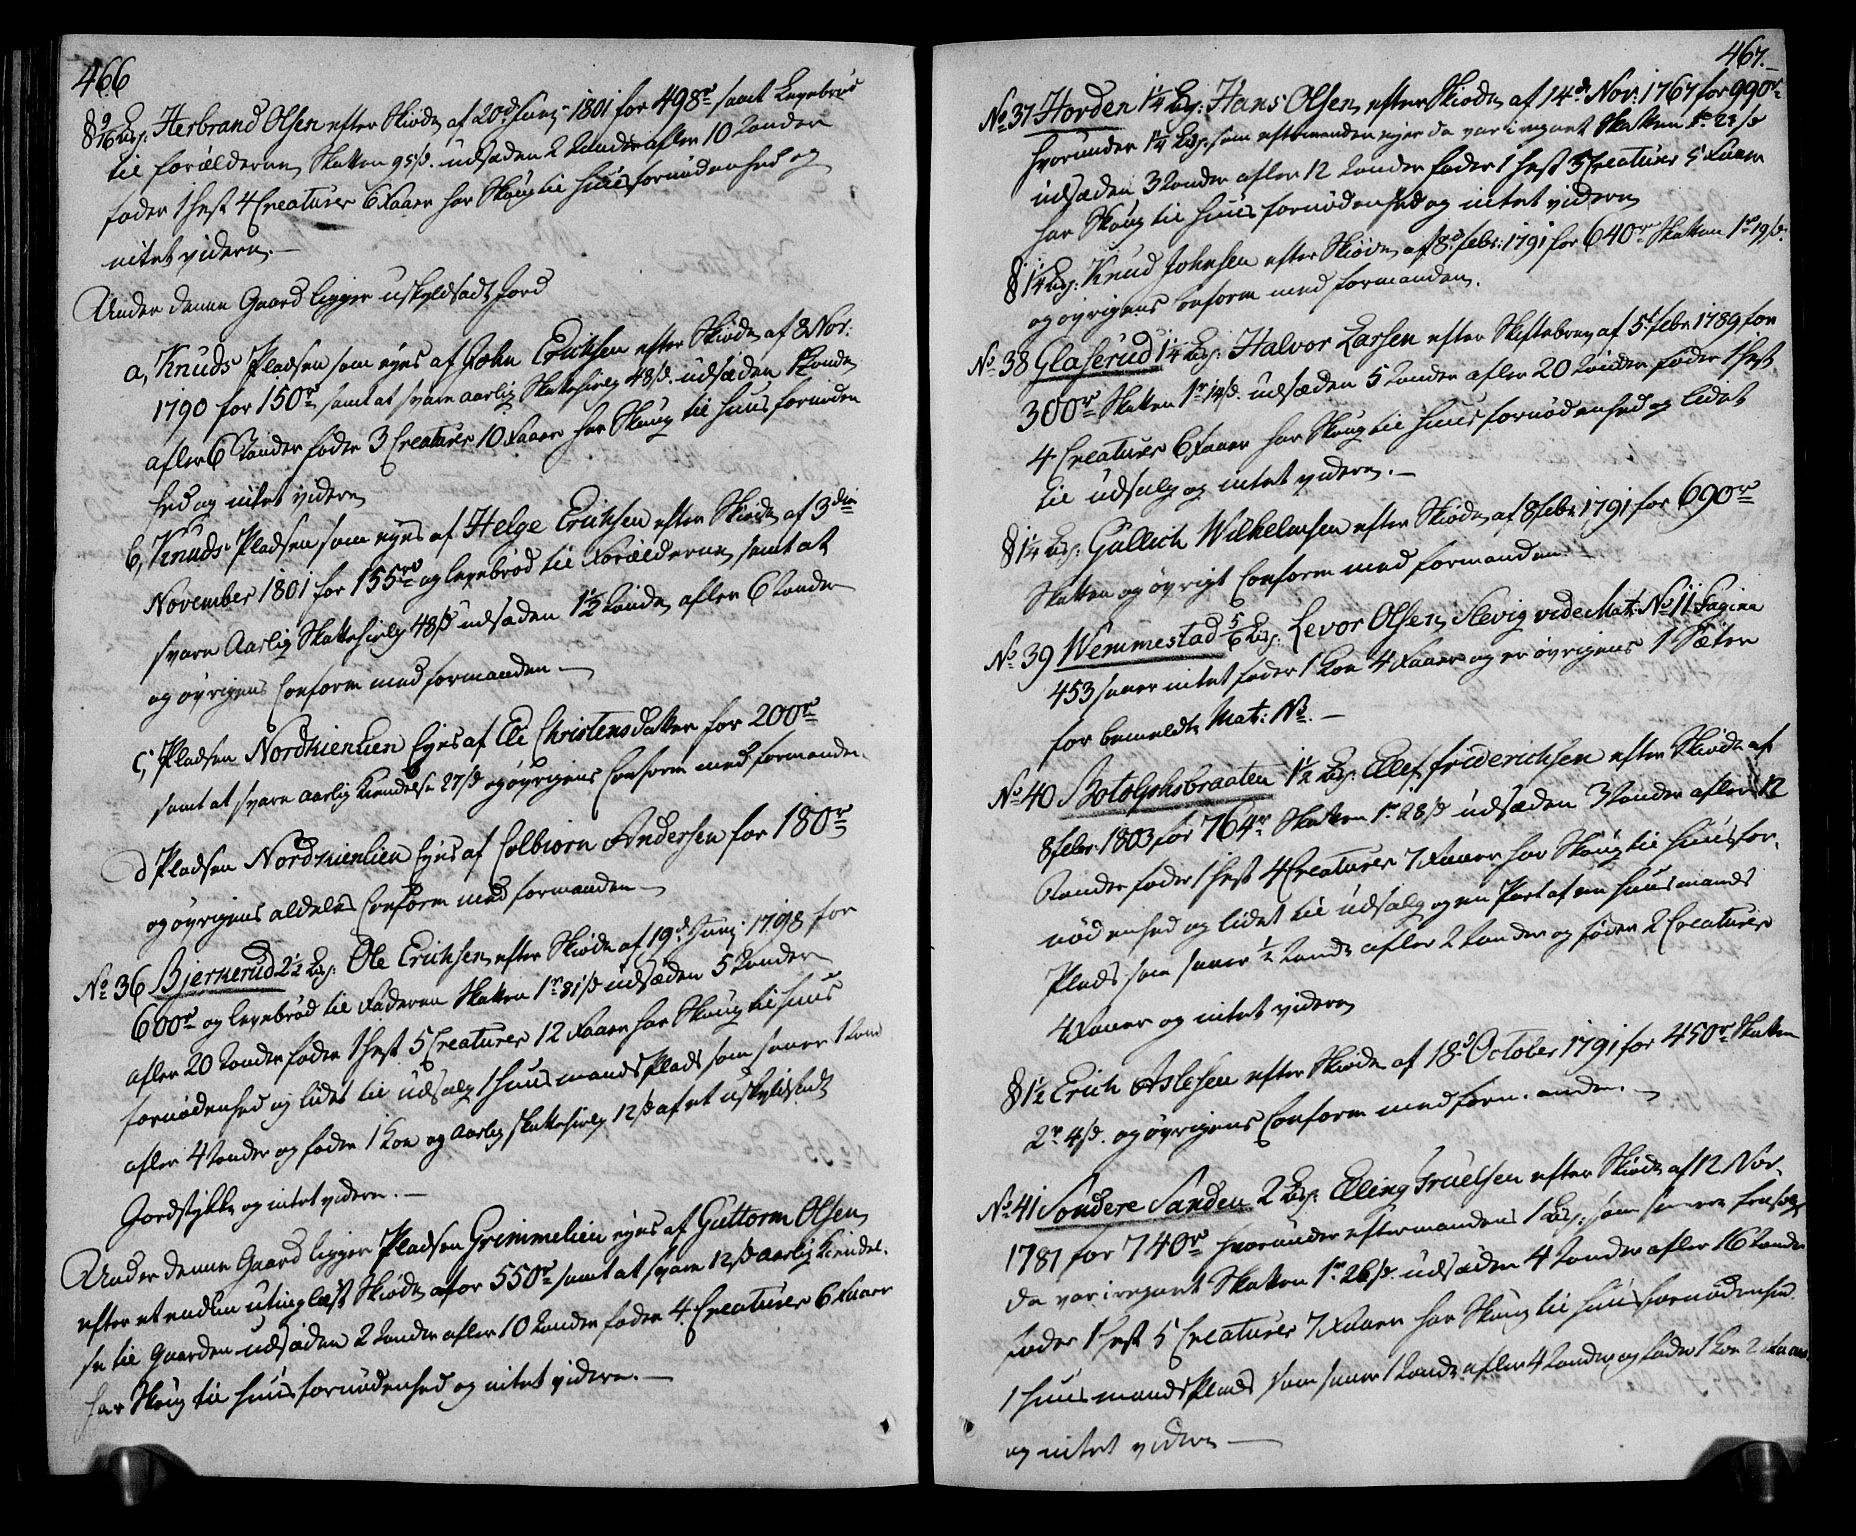 466
§ 9/16 Lsp: Herbrand Olsen efter Skiøde af 20d Junj 1801 for 498rd samt Levebrød
til forælderne, Skatten 95 s. udsæden 2 Tønder afler 10 Tønder
føder 1 Hest 4 Creaturer 6 Faaer har Skoug til Huusfornødenhed og
intet videre. —
Under denne Gaard ligger uskyldsadt Jord
a, Knuds Pladsen som eyes af John Erichsen efter Skiøde af 8 Nov:
1790 for 150rd samt at svare aarlig Skattehielp 48 s. udsæden 1 Tønde
afler 6 Tønder føder 3 Creaturer 10 Faaer har Skoug til Huusfornøden
hed og intet videre
b, Knuds Pladsen som eyes af Helge Erichsen efter Skiøde af 3die
November 1801 for 155rd og levebrød til Forælderne, samt at
svare Aarlig Skattehielp 48 s udsæden 1½ Tønde afler 6 Tønder
og øvrigens Conform med formanden —
c, Pladsen Nordhienlien Eyes af Eli Christensdatter for 200rd
samt at svare aarlig Kiendelse 27 s og øvrigens Conform med formanden.
d Pladsen Nordhienlien Eyes af Colbiørn Andersen for 180rd
og øvrigens aldeles Conform med formanden —
No 36 Bjernerud 2½ Lsp: Ole Erichsen efter Skiøde af 19d Junj: 1798 for
600rd og levebrød til Faderen Skatten 1r 81 s udsæden 5 Tønder
afler 20 Tønder føder 1 Hest 5 Creaturer 12 Faaer har Skoug til Huus
fornødenhed og lidet til udsalg 1 Huusmands Plads som saaer 1 Tønde
afler 4 Tønder og føder 1 Koe og aarlig skattehielp 12 s af et uskyldsadt
Jordstykke og intet videre. —
Under denne Gaard ligger Pladsen Grimmelien eyes af Guttorm Olsen
efter et endnu utinglæst Skiøde for 550rd samt at svare 12 s aarlig Kiendel-
se til Gaarden udsæden 2 Tønder afler 10 Tønder føder 4 Creaturer 6 Faaer
har Skoug til Huusfornødenhed og intet videre. —
467.
No 37 Horden 1¼ Lsp: Hans Olsen efter Skiøde af 14d Nov: 1767 for 990rd
hvorunder 1¼ Lsp: som eftermanden eyer da var iregnet Skatten 1r 23 s
udsæden 3 Tønder afler 12 Tønder føder 1 Hest 3 Creaturer 5 Faaer
har Skoug til Huusfornødenhed og intet videre
§ 1¼ Lsp: Knud Johnsen efter Skiøde af 8d Febr: 1791 for 640rd Skatten 1r 19 s.
og øvrigens Conform med formanden.
No 38 Glaserud 1¼ Lsp: Halvor Larsen efter Skiftebrev af 5 Febr 1789 for
300rd Skatten 1r 14 s. udsæden 5 Tønder afler 20 Tønder føder 1 Hest
4 Creaturer 6 Faaer har Skoug til Huusfornødenhed og lidet
til udsalg og intet videre. —
§ 1¼ Lsp: Gullich Wilhelmsen efter Skiøde af 8 Febr 1791 for 690rd
Skatten og øvrigt Conform med formanden. —
No 39 Wemmestad 5/6 Lsp: Levor Olsen Slevig vide Mat: No 11 Pagina
453 saaer intet føder 1 Koe 4 Faaer og er øvrigens 1 Sæter
for bemeldte Mat: No. —
No 40 Botolphsbraaten 1½ Lsp: Ellef Friderichsen efter Skiøde af
8 Febr: 1803 for 764rd Skatten 1r 28 s udsæden 3 Tønder afler 12
Tønder føder 1 Hest 4 Creaturer 7 Faaer har Skoug til Huusfor-
nødenhed og lidet til udsalg og en Part af en Huusmands
Plads som saaer ½ Tønde afler 2 Tønder og føder 2 Creaturer
4 Faaer og intet videre
§ 1½ Erich Aslesen efter Skiøde af 18d October 1791 for 450rd Skatten
2r 4 s. og øvrigens Conform med formanden. —
No 41 Søndere Sanden 2 Lsp: Elling Truelsen efter Skiøde af 12 Nov-
1781 for 740rd hvorunder eftermandens 1 Lsp: som senere frasolgt
da var iregnet Skatten 1r 26 s. udsæden 4 Tønder afler 16 Tønder
føder 1 Hest 5 Creaturer 7 Faaer har Skoug til Huusfornødenhed.
1 Huusmands Plads som saaer 1 Tønde afler 4 Tønder og føder 1 Koe 2 Faaer
og intet videre —